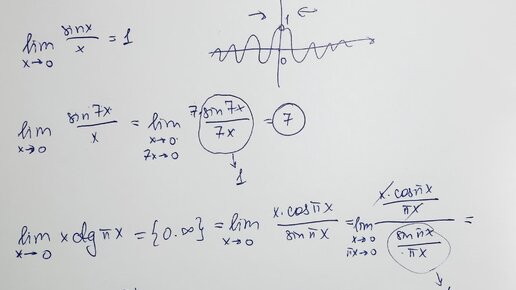 lim x→0 sinx/x = 1
1
0
lim x→0 sin7x/x = lim x→0 7x→0 7·sin7x/7x = 7
1
lim x→0 x ctg πx = {0·∞} = lim x→0 x·cosπx/sinπx = lim x→0 πx→0 (x·cosπx/πx)/(sinπx/πx) =